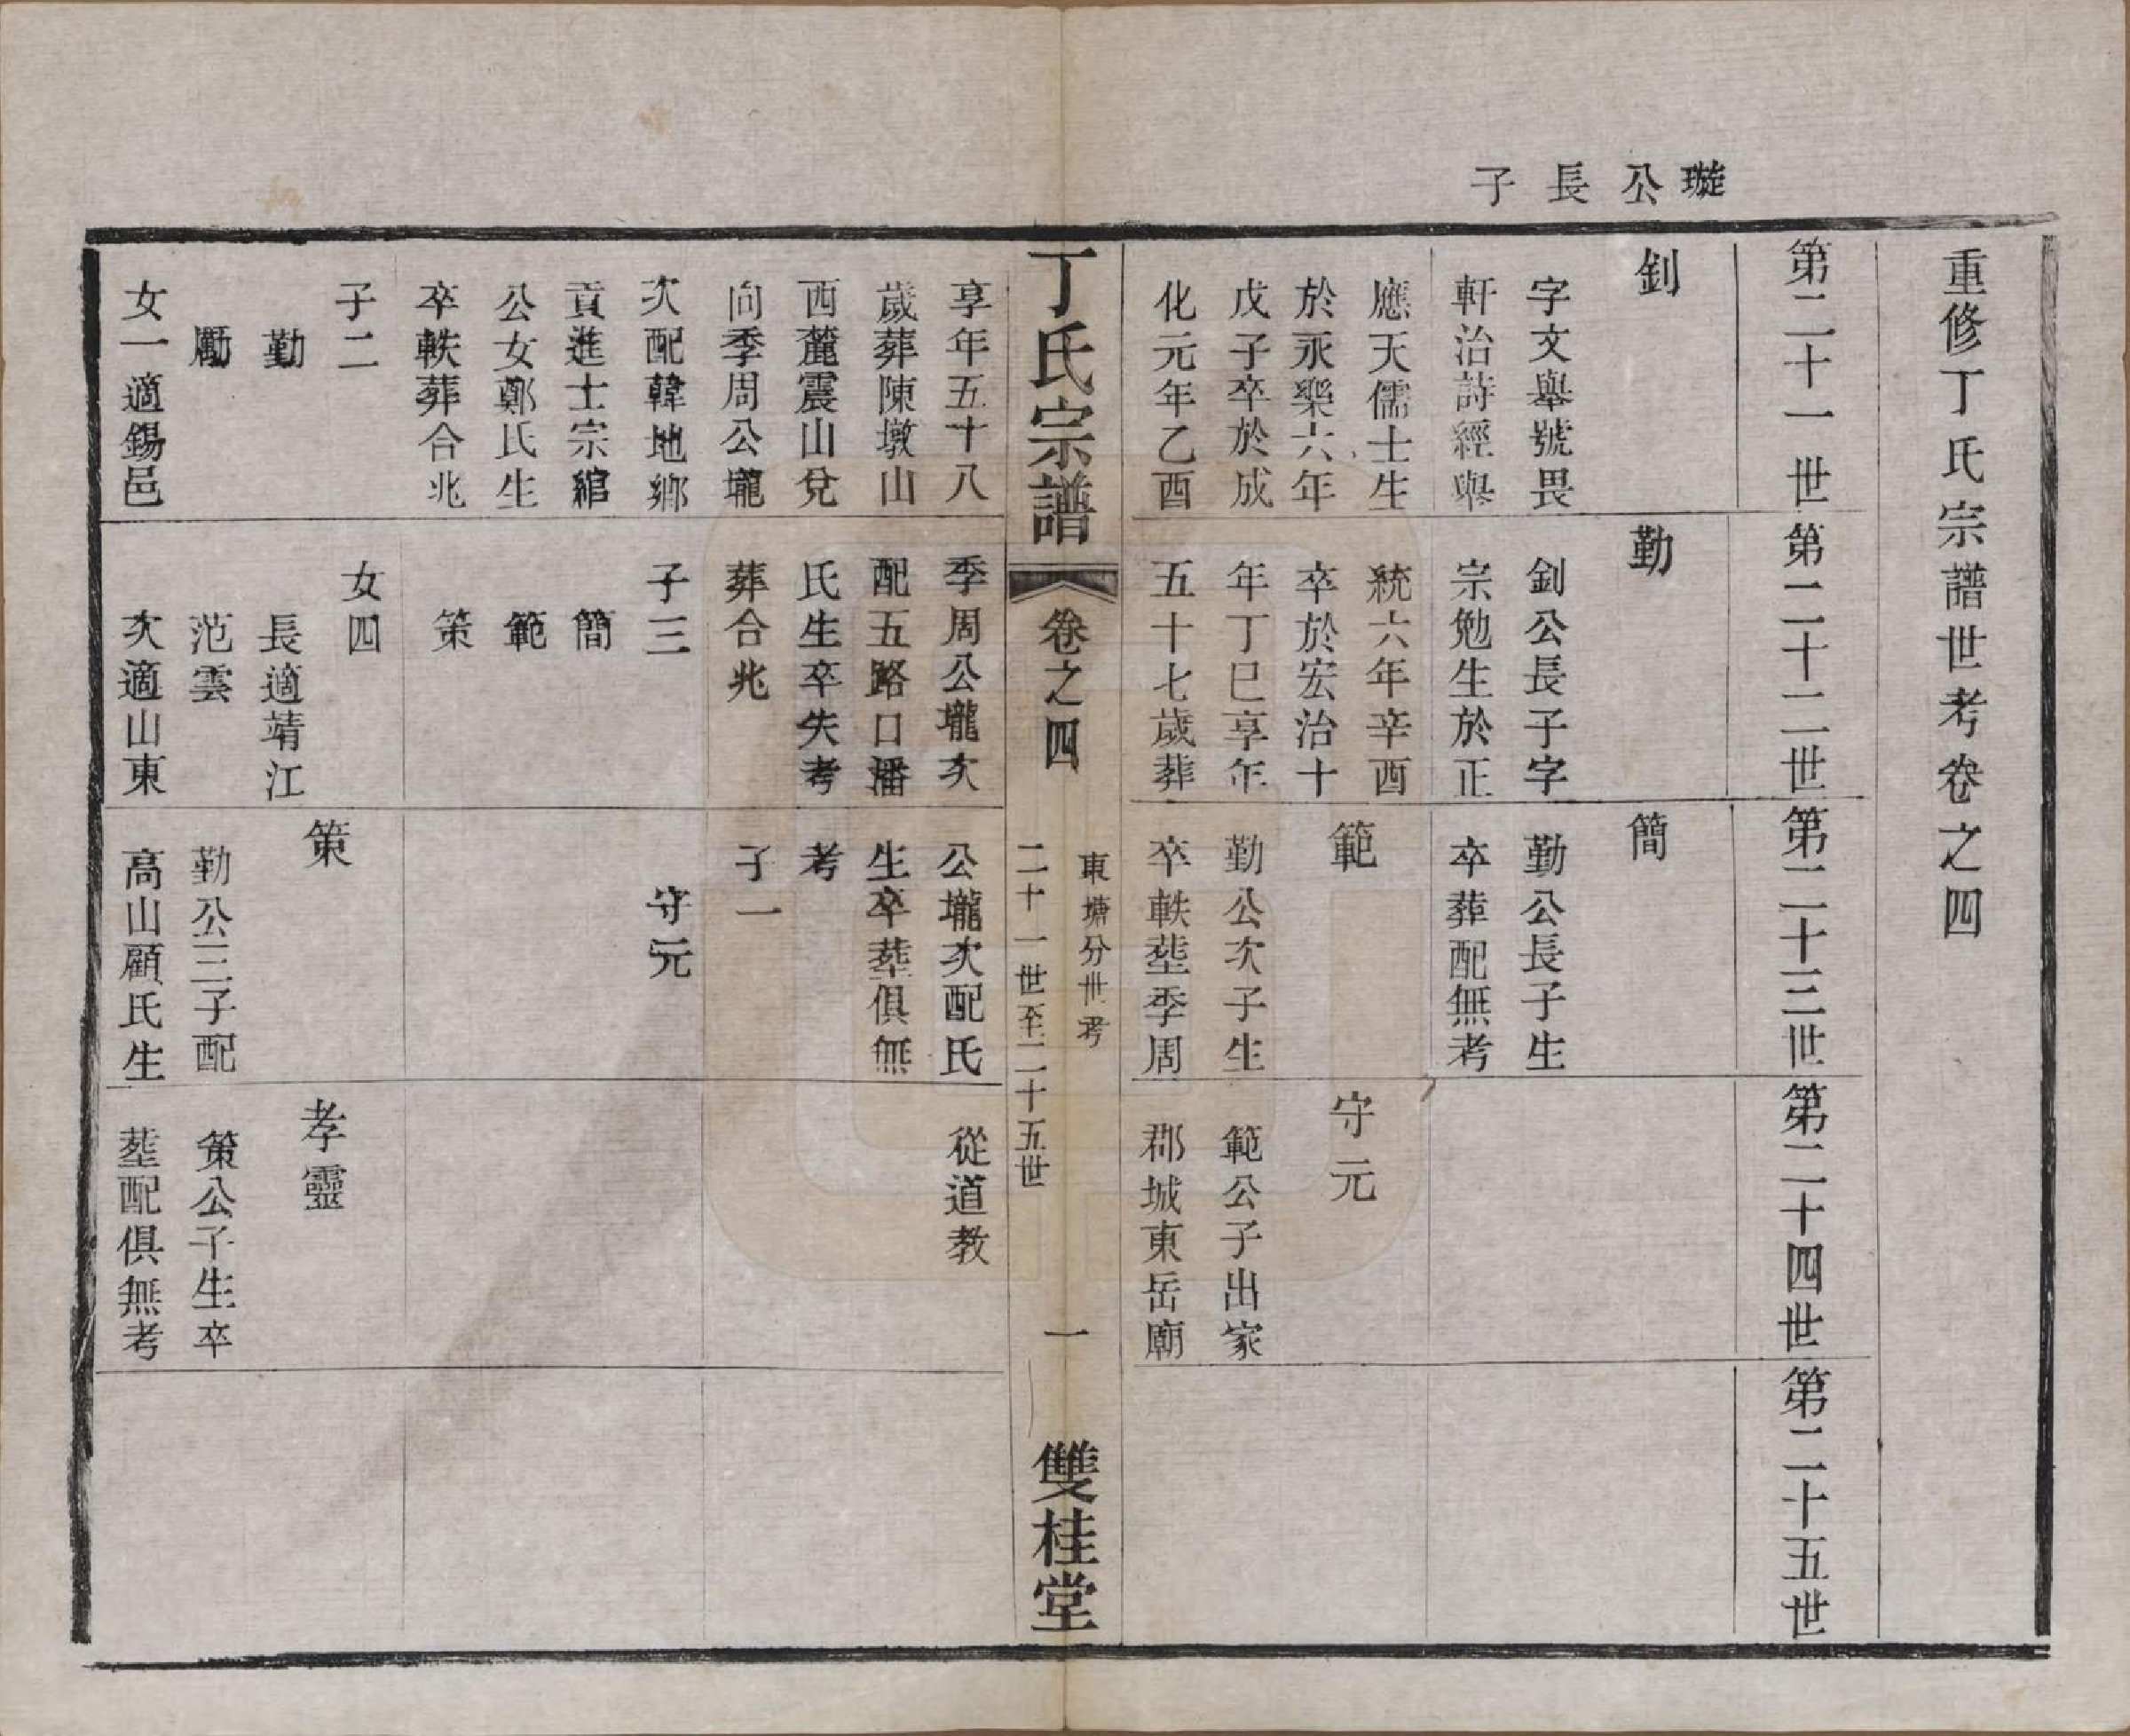 重修丁氏宗譜世考卷之四
璇公長子
第二十一世
釗
字文舉號畏
軒治詩經與
應天儒士生
於永樂六年
戊子卒於成
化元年乙酉
享年五十八
歲葬陳墩山
西麓震山兌
向季周公壠
次配韓地鄉
貢進士宗綰
公女鄭氏生
卒軼葬合兆
子二
勤
勵
女一適錫邑
第二十二世
勤
釗公長子字
宗勉生於正
統六年辛酉
卒於宏治十
年丁巳享年
五十七歲葬
季周公壠次
配五路口潘
氏生卒失考
葬合兆
子三
簡
範
策
女四
長適靖江
范雲
次適山東
第二十三世
簡
勤公長子生
卒葬配無考
範
勤公次子生
卒軼塟季周
公壠次配氏
生卒塟俱無
考
子一
守元
策
勤公三子配
高山顧氏生
第二十四世
守元
範公子出家
郡城東岳廟
從道教
孝靈
策公子生卒
塟配俱無考
第二十五世
丁氏宗譜
卷之四
東塘分世考
二十一世至二十五世
一
雙桂堂